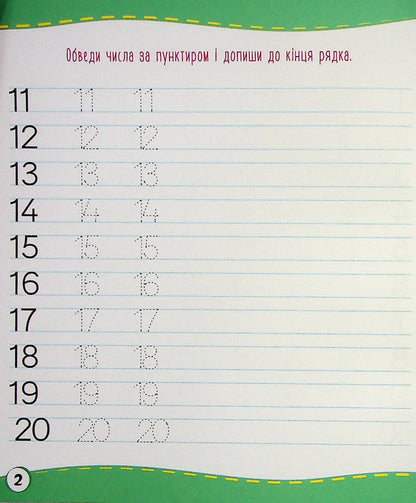 Обведи числа за пунктиром і допиши до кінця рядка.
11 11 11
12 12 12
13 13 13
14 14 14
15 15 15
16 16 16
17 17 17
18 18 18
19 19 19
20 20 20
2